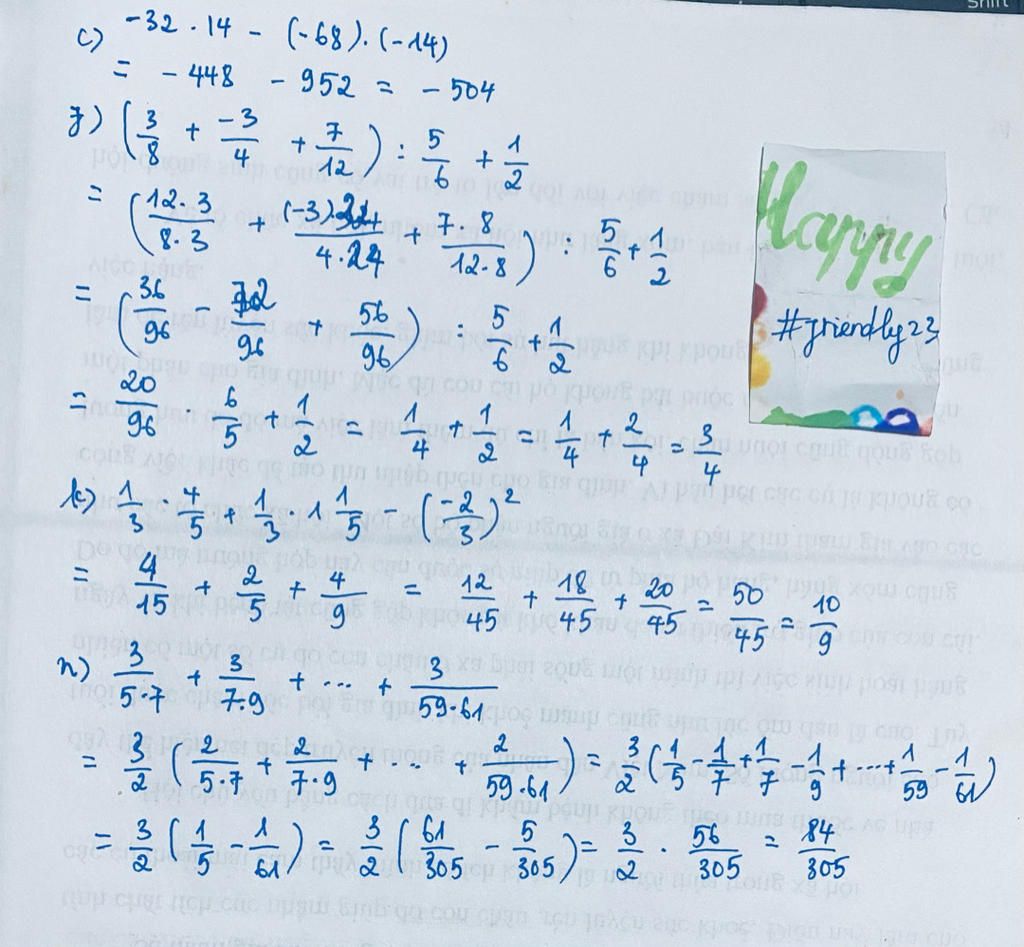 Shift
c) -32 . 14 - (-68) . (-14)
= -448 - 952 = -504
f) (3/8 + -3/4 + 7/12) : 5/6 + 1/2
= (12.3/8.3 + (-3).24/4.24 + 7.8/12.8) : 5/6 + 1/2
= (36/96 - 72/96 + 56/96) : 5/6 + 1/2
= 20/96 . 6/5 + 1/2 = 1/4 + 1/2 = 1/4 + 2/4 = 3/4
k) 1/3 . 4/5 + 1/3 . 1 1/5 - (-2/3)²
= 4/15 + 2/5 + 4/9 = 12/45 + 18/45 + 20/45 = 50/45 = 10/9
n) 3/5.7 + 3/7.9 + ... + 3/59.61
= 3/2 (2/5.7 + 2/7.9 + ... + 2/59.61) = 3/2 (1/5 - 1/7 + 1/7 - 1/9 + ... + 1/59 - 1/61)
= 3/2 (1/5 - 1/61) = 3/2 (61/305 - 5/305) = 3/2 . 56/305 = 84/305
Happy
#friendly23